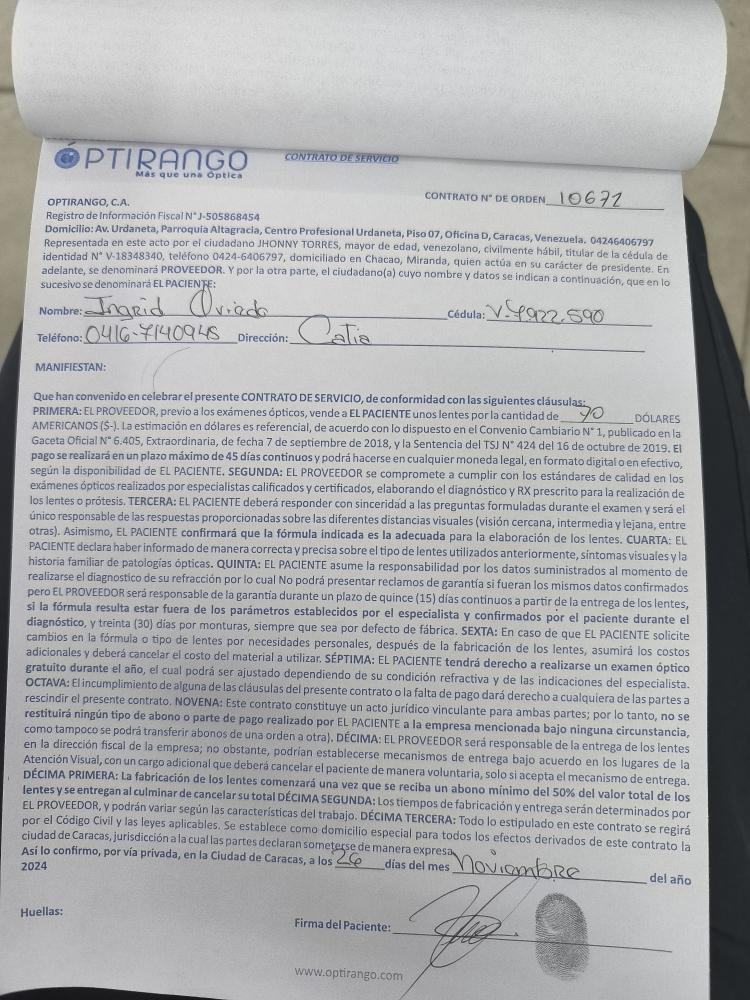 ÓPTIRANGO
Más que una Óptica
CONTRATO DE SERVICIO
CONTRATO N° DE ORDEN 10671
OPTIRANGO, C.A.
Registro de Información Fiscal N° J-505868454
Domicilio: Av. Urdaneta, Parroquia Altagracia, Centro Profesional Urdaneta, Piso 07, Oficina D, Caracas, Venezuela. 04246406797
Representada en este acto por el ciudadano JHONNY TORRES, mayor de edad, venezolano, civilmente hábil, titular de la cédula de
identidad N° V-18348340, teléfono 0424-6406797, domiciliado en Chacao, Miranda, quien actúa en su carácter de presidente. En
adelante, se denominará PROVEEDOR. Y por la otra parte, el ciudadano(a) cuyo nombre y datos se indican a continuación, que en lo
sucesivo se denominará EL PACIENTE:
Nombre: Ingrid Oviedo Cédula: V-7.922.590
Teléfono: 0416-7140945 Dirección: Catia
MANIFIESTAN:
Que han convenido en celebrar el presente CONTRATO DE SERVICIO, de conformidad con las siguientes cláusulas:
PRIMERA: EL PROVEEDOR, previo a los exámenes ópticos, vende a EL PACIENTE unos lentes por la cantidad de 40 DÓLARES
AMERICANOS ($-). La estimación en dólares es referencial, de acuerdo con lo dispuesto en el Convenio Cambiario N° 1, publicado en la
Gaceta Oficial N° 6.405, Extraordinaria, de fecha 7 de septiembre de 2018, y la Sentencia del TSJ N° 424 del 16 de octubre de 2019. El
pago se realizará en un plazo máximo de 45 días continuos y podrá hacerse en cualquier moneda legal, en formato digital o en efectivo,
según la disponibilidad de EL PACIENTE. SEGUNDA: EL PROVEEDOR se compromete a cumplir con los estándares de calidad en los
exámenes ópticos realizados por especialistas calificados y certificados, elaborando el diagnóstico y RX prescrito para la realización de
los lentes o prótesis. TERCERA: EL PACIENTE deberá responder con sinceridad a las preguntas formuladas durante el examen y será el
único responsable de las respuestas proporcionadas sobre las diferentes distancias visuales (visión cercana, intermedia y lejana, entre
otras). Asimismo, EL PACIENTE confirmará que la fórmula indicada es la adecuada para la elaboración de los lentes. CUARTA: EL
PACIENTE declara haber informado de manera correcta y precisa sobre el tipo de lentes utilizados anteriormente, síntomas visuales y la
historia familiar de patologías ópticas. QUINTA: EL PACIENTE asume la responsabilidad por los datos suministrados al momento de
realizarse el diagnostico de su refracción por lo cual No podrá presentar reclamos de garantía si fueran los mismos datos confirmados
pero EL PROVEEDOR será responsable de la garantía durante un plazo de quince (15) días continuos a partir de la entrega de los lentes,
si la fórmula resulta estar fuera de los parámetros establecidos por el especialista y confirmados por el paciente durante el
diagnóstico, y treinta (30) días por monturas, siempre que sea por defecto de fábrica. SEXTA: En caso de que EL PACIENTE solicite
cambios en la fórmula o tipo de lentes por necesidades personales, después de la fabricación de los lentes, asumirá los costos
adicionales y deberá cancelar el costo del material a utilizar. SÉPTIMA: EL PACIENTE tendrá derecho a realizarse un examen óptico
gratuito durante el año, el cual podrá ser ajustado dependiendo de su condición refractiva y de las indicaciones del especialista.
OCTAVA: El incumplimiento de alguna de las cláusulas del presente contrato o la falta de pago dará derecho a cualquiera de las partes a
rescindir el presente contrato. NOVENA: Este contrato constituye un acto jurídico vinculante para ambas partes; por lo tanto, no se
restituirá ningún tipo de abono o parte de pago realizado por EL PACIENTE a la empresa mencionada bajo ninguna circunstancia,
como tampoco se podrá transferir abonos de una orden a otra). DÉCIMA: EL PROVEEDOR será responsable de la entrega de los lentes
en la dirección fiscal de la empresa; no obstante, podrían establecerse mecanismos de entrega bajo acuerdo en los lugares de la
Atención Visual, con un cargo adicional que deberá cancelar el paciente de manera voluntaria, solo si acepta el mecanismo de entrega.
DÉCIMA PRIMERA: La fabricación de los lentes comenzará una vez que se reciba un abono mínimo del 50% del valor total de los
lentes y se entregan al culminar de cancelar su total DÉCIMA SEGUNDA: Los tiempos de fabricación y entrega serán determinados por
EL PROVEEDOR, y podrán variar según las características del trabajo. DÉCIMA TERCERA: Todo lo estipulado en este contrato se regirá
por el Código Civil y las leyes aplicables. Se establece como domicilio especial para todos los efectos derivados de este contrato la
ciudad de Caracas, jurisdicción a la cual las partes declaran someterse de manera expresa
Así lo confirmo, por vía privada, en la Ciudad de Caracas, a los 26 días del mes Noviembre del año
2024
Huellas:
Firma del Paciente:
www.optirango.com